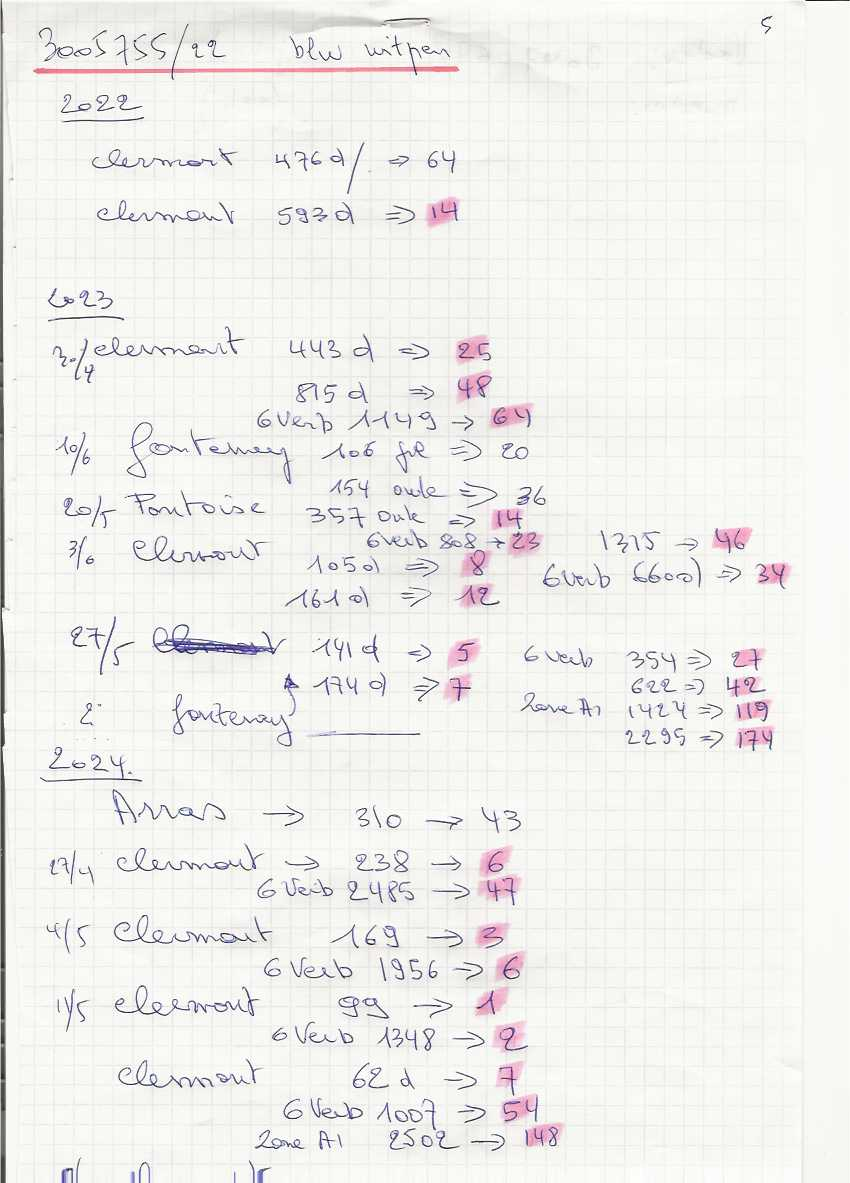 5
3005755/22 blw witpen
2022
clermont 476 d/. => 64
clermont 593 d => 14
2023
30/4 clermont 443 d => 25
815 d => 48
6 Verb 1149 -> 64
10/6 fontenay 106 => 20
154 oude => 36
20/5 Pontoise 357 oude => 14
6 verb 808 -> 23 1315 -> 46
3/6 Clermont 105 d => 8 6 Verb 660 d => 34
161 d => 12
27/5 141 d => 5 6 verb 354 => 27
174 d => 7 622 => 42
fontenay Zone A1 1424 => 119
2295 => 174
2024.
Arras -> 310 -> 43
27/4 Clermont -> 238 -> 6
6 Verb 2485 -> 47
4/5 Clermont 169 -> 3
6 Verb 1956 -> 6
11/5 Clermont 99 -> 1
6 Verb 1348 -> 2
Clermont 62 d -> 7
6 Verb 1007 -> 54
Zone A1 2502 -> 148